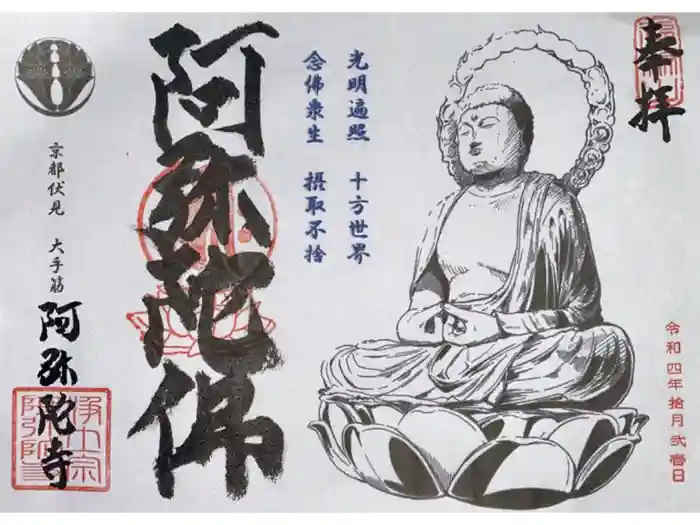 奉拝
令和四年拾月弐壹日
光明遍照 十方世界
念佛衆生 摂取不捨
阿弥陀佛
京都伏見 大手筋
阿弥陀寺
浄土宗